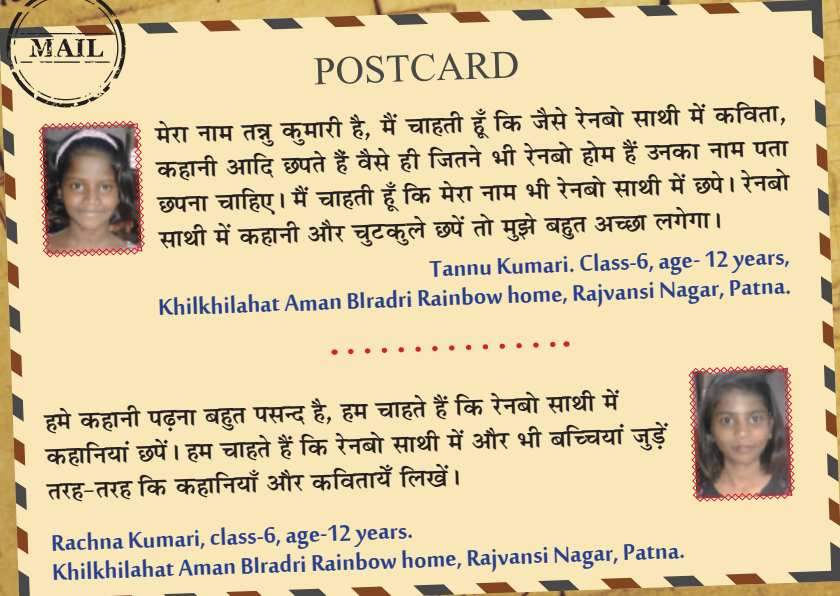 MAIL
POSTCARD
मेरा नाम तन्नु कुमारी है, मैं चाहती हूँ कि जैसे रेनबो साथी में कविता,
कहानी आदि छपते हैं वैसे ही जितने भी रेनबो होम हैं उनका नाम पता
छपना चाहिए। मैं चाहती हूँ कि मेरा नाम भी रेनबो साथी में छपे। रेनबो
साथी में कहानी और चुटकुले छपें तो मुझे बहुत अच्छा लगेगा।
Tannu Kumari. Class-6, age- 12 years,
Khilkhilahat Aman BIradri Rainbow home, Rajvansi Nagar, Patna.
हमे कहानी पढ़ना बहुत पसन्द है, हम चाहते हैं कि रेनबो साथी में
कहानियां छपें। हम चाहते हैं कि रेनबो साथी में और भी बच्चियां जुड़ें
तरह-तरह कि कहानियाँ और कवितायेँ लिखें।
Rachna Kumari, class-6, age-12 years.
Khilkhilahat Aman BIradri Rainbow home, Rajvansi Nagar, Patna.